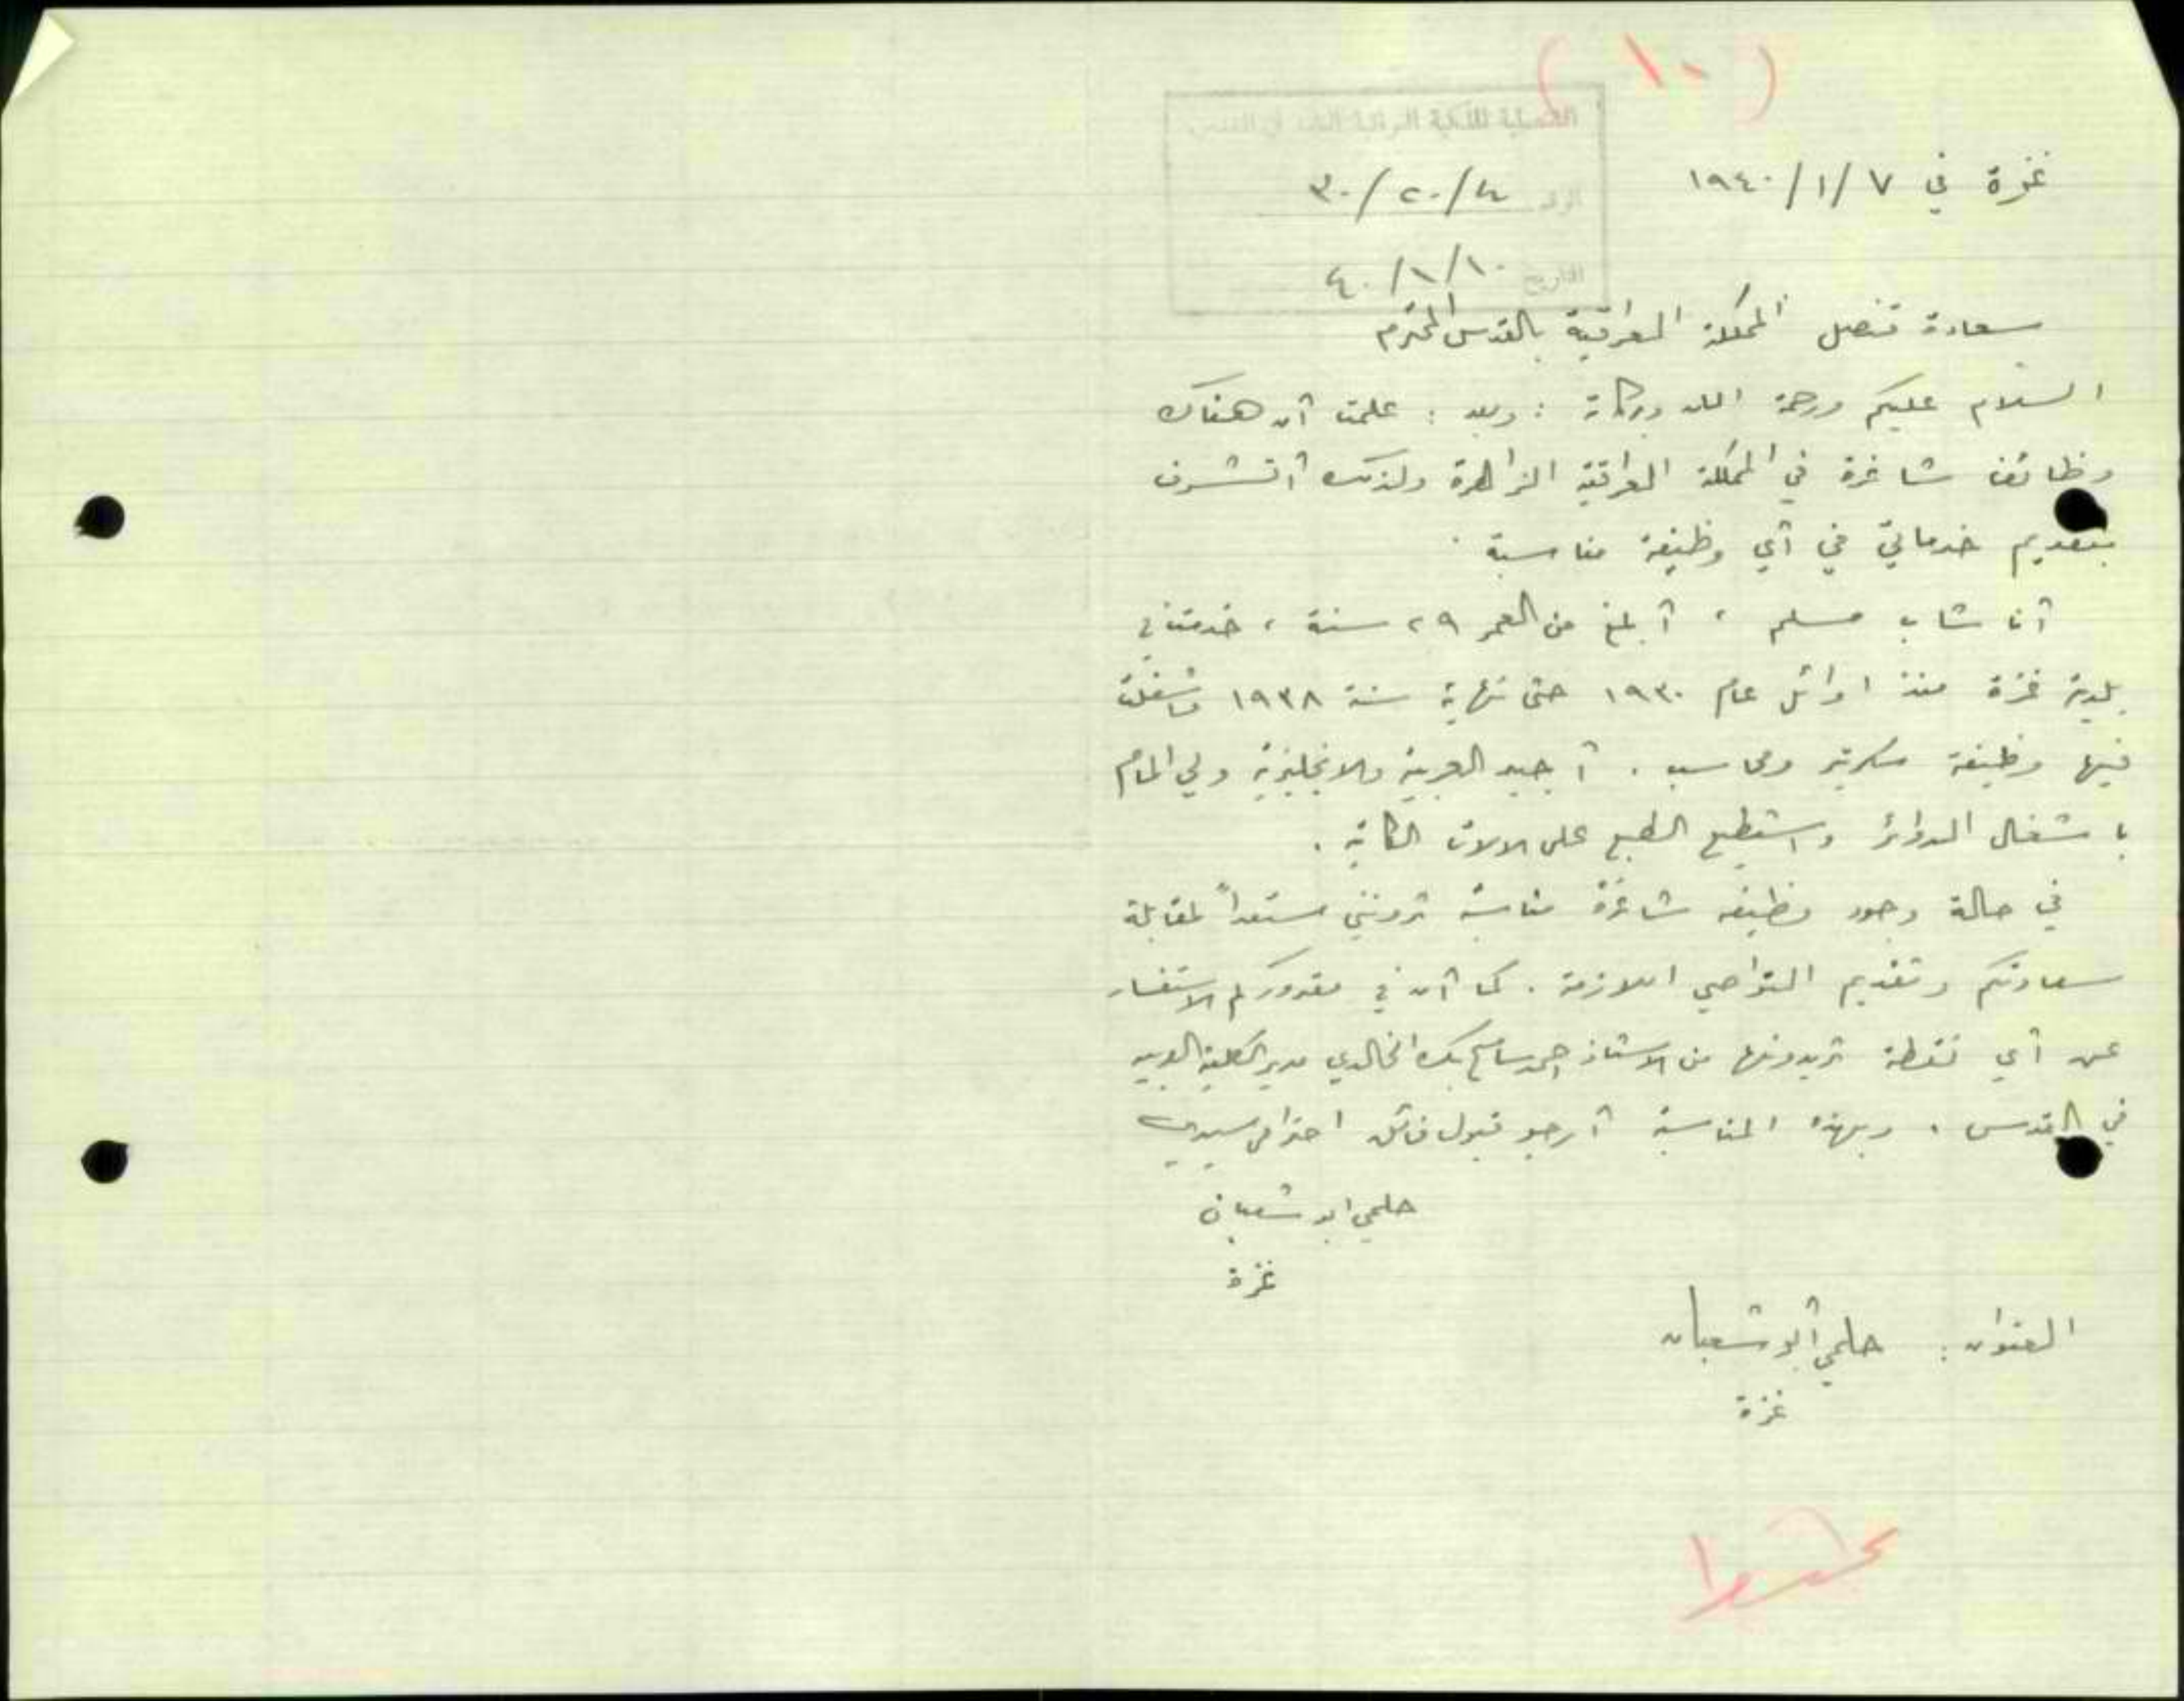 (١٠)
القنصلية الملكية العراقية العامة في القدس
غزة في ٧/١/١٩٤٠
الرقم ٤/٢٠/٣٠
التاريخ ١٠/١/٤٠
سعادة قنصل المملكة العراقية بالقدس المحترم
السلام عليكم ورحمة الله وبركاته : وبعد : علمت أن هناك
وظائف شاغرة في المملكة العراقية الزاهرة ولذلك أتشرف
بتقديم خدماتي في أي وظيفة مناسبة .
أنا شاب مسلم ، أبلغ من العمر ٢٩ سنة ، خدمت في
بلدية غزة منذ اوائل عام ١٩٣٠ حتى نهاية سنة ١٩٣٨ وشغلت
فيها وظيفة سكرتير ومحاسب . أجيد العربية والانجليزية ولي المام
باشغال الدوائر واستطيع الطبع على الالات الكاتبة .
في حالة وجود وظيفة شاغرة مناسبة ترونني مستعداً لمقابلة
سعادتكم وتقديم التواصي اللازمة . كما أن في مقدوركم الاستفسار
عن أي نقطة تريدونها من الاستاذ احمد سامح بك الخالدي مدير الكلية العربية
في القدس . وبهذه المناسبة أرجو قبول فائق احترامي سيدي
حلمي ابو شعبان
غزة
العنوان : حلمي أبو شعبان
غزة